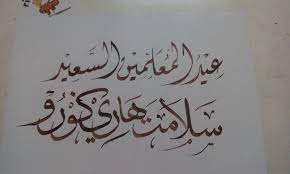 عيد المعلمين السعيد
سلامت هاري ݢورو